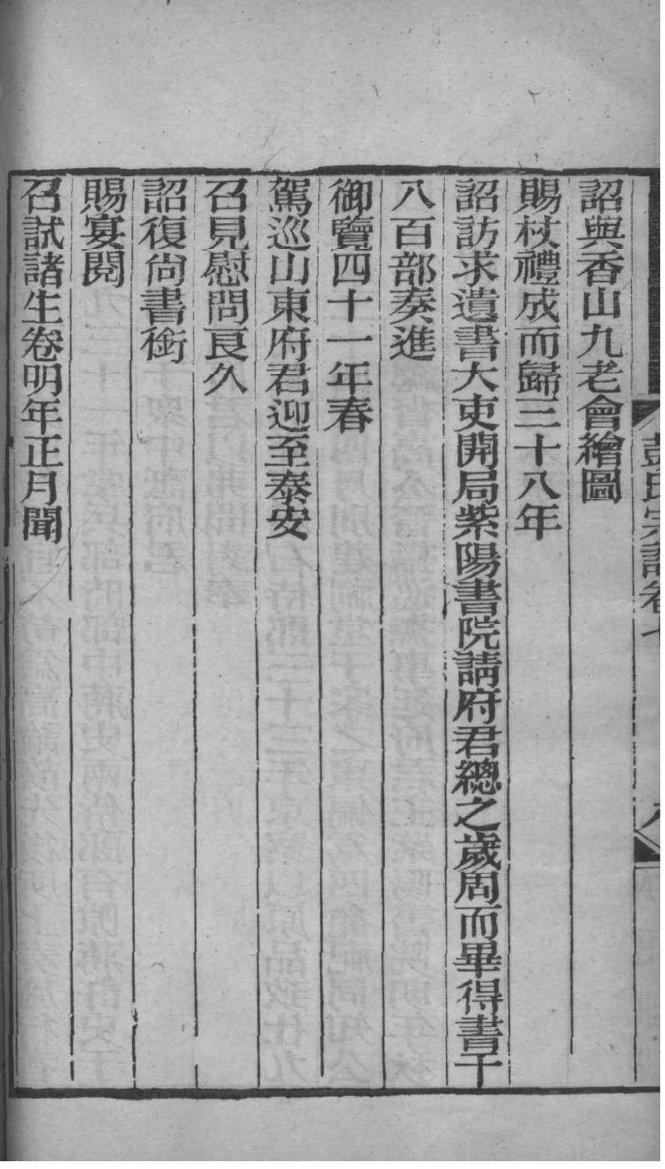 彭氏宗譜卷七
詔與香山九老會繪圖
賜杖禮成而歸三十八年
詔訪求遺書大吏開局紫陽書院請府君總之歲周而畢得書千
八百部奏進
御覽四十一年春
駕巡山東府君迎至泰安
召見慰問良久
詔復尚書銜
賜宴閱
召試諸生卷明年正月聞